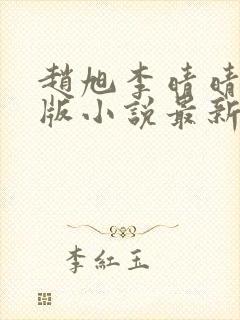 趙旭李晴晴
版小說最新
李紅玉